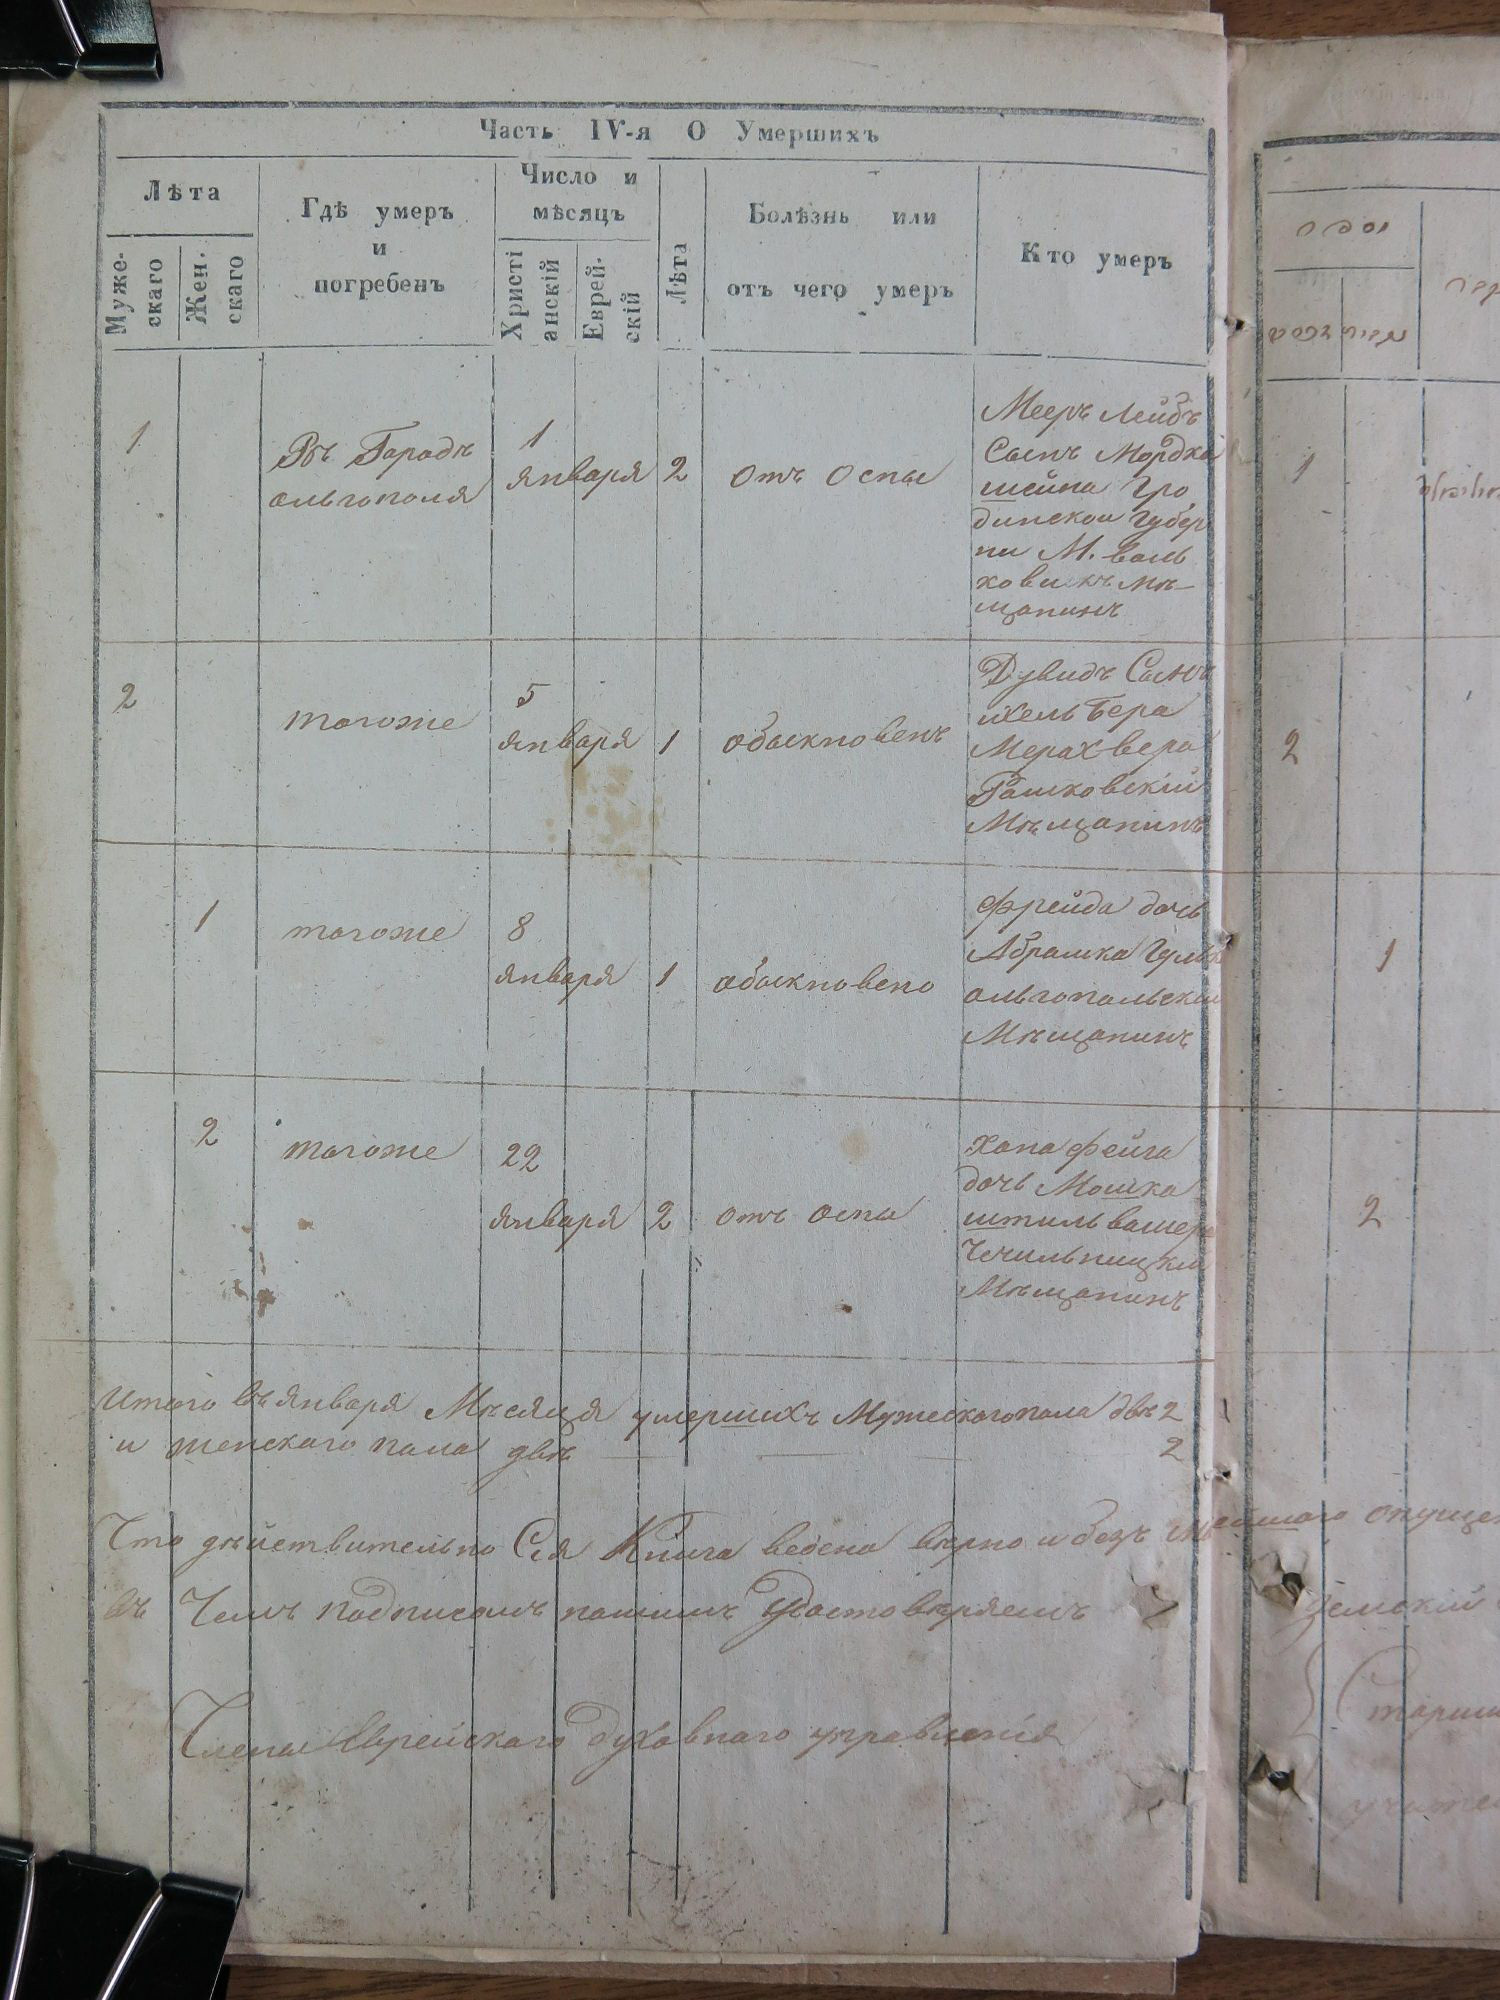 Часть IV-я О Умершихъ
Лѣта
Муже-
скаго
Жен.
скаго
Гдѣ умеръ
и
погребенъ
Число и
мѣсяцъ
Христі
анскій
Еврей-
скій
Лѣта
Болѣзнь или
отъ чего умеръ
Кто умеръ
1
Въ Городѣ
ольгополя
1
января
2
отъ оспы
Мееръ Лейбъ
Сынъ Мордка
шейна Гро
динской губер
ни М. Воль
ковискъ мѣ-
щанинъ
2
тогоже
5
января
1
обыкновенъ
Дувидъ Сынъ
Ихель Бера
Рашковскій
Мѣщанинъ
1
тогоже
8
января
1
обыкновено
Фрейда дочь
Абрамка
ольгопольскій
Мѣщанинъ
2
тогоже
22
января
2
отъ оспы
Хана Фейга
дочь Мошка
штильвашера
Чечильницкій
Мѣщанинъ
Итого въ января Мѣсяця умершихъ Мужескогопола двѣ 2
и женскаго пола двѣ 2
Что дѣйствительно Сія Книга ведена вѣрно и безъ малейшаго опуще
въ Чемъ подписомъ нашимъ Удостовѣряемъ
Члены Еврейскаго духовнаго управленія
1
2
1
2